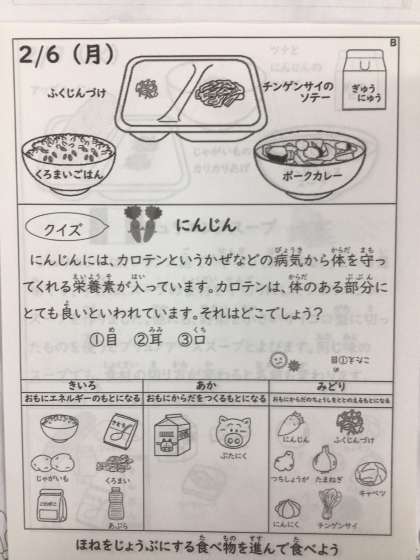 2/6（月）
B
ふくじんづけ
チンゲンサイの
ソテー
ぎゅう
にゅう
くろまいごはん
ポークカレー
クイズ
にんじん
にんじんには、カロテンというかぜなどの病気から体を守っ
てくれる栄養素が入っています。カロテンは、体のある部分に
とても良いといわれています。それはどこでしょう？
①目　②耳　③口
きいろ
あか
みどり
おもにエネルギーのもとになる
おもにからだをつくるもとになる
おもにからだのちょうしをととのえるもとになる
さとう
じゃがいも
くろまい
あぶら
ぶたにく
にんじん
ふくじんづけ
つちしょうが
たまねぎ
キャベツ
にんにく
チンゲンサイ
ほねをじょうぶにする食べ物を進んで食べよう